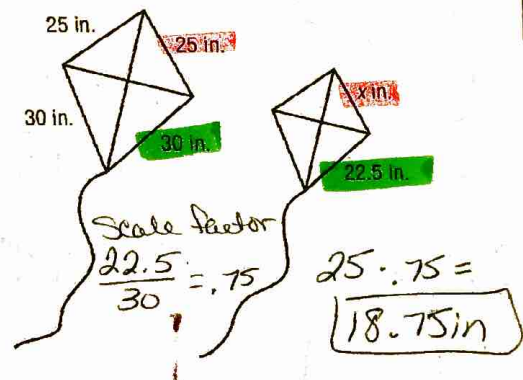 25 in.
25 in.
30 in.
30 in.
x in.
22.5 in.
Scale factor
22.5
30
= .75
25 · .75 =
18.75in